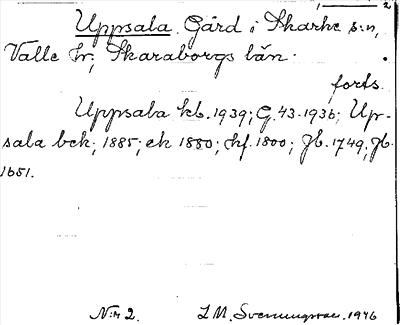 1 2
Uppsala. Gård i Skarke s:n,
Valle hr; Skaraborgs län.
forts.
Uppsala kb. 1939; G. 43. 1936; Up-
sala bek; 1885; ek 1880; hf. 1800; Jb. 1749; Jb.
1651.
N:r 2. I.M. 1946